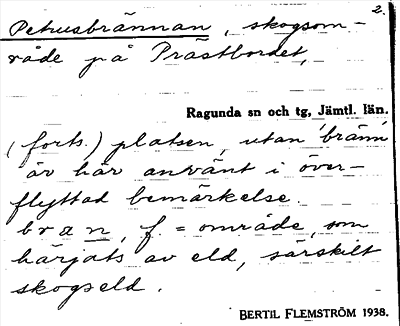 2.
Petrusbrännan, skogsom-
råde på Prästbordet,
Ragunda sn och tg, Jämtl. län.
(forts.) platsen, utan 'bränn'
är här använt i över-
flyttad bemärkelse.
bran, f. = område, som
härjats av eld, särskilt
skogseld.
BERTIL FLEMSTRÖM 1938.